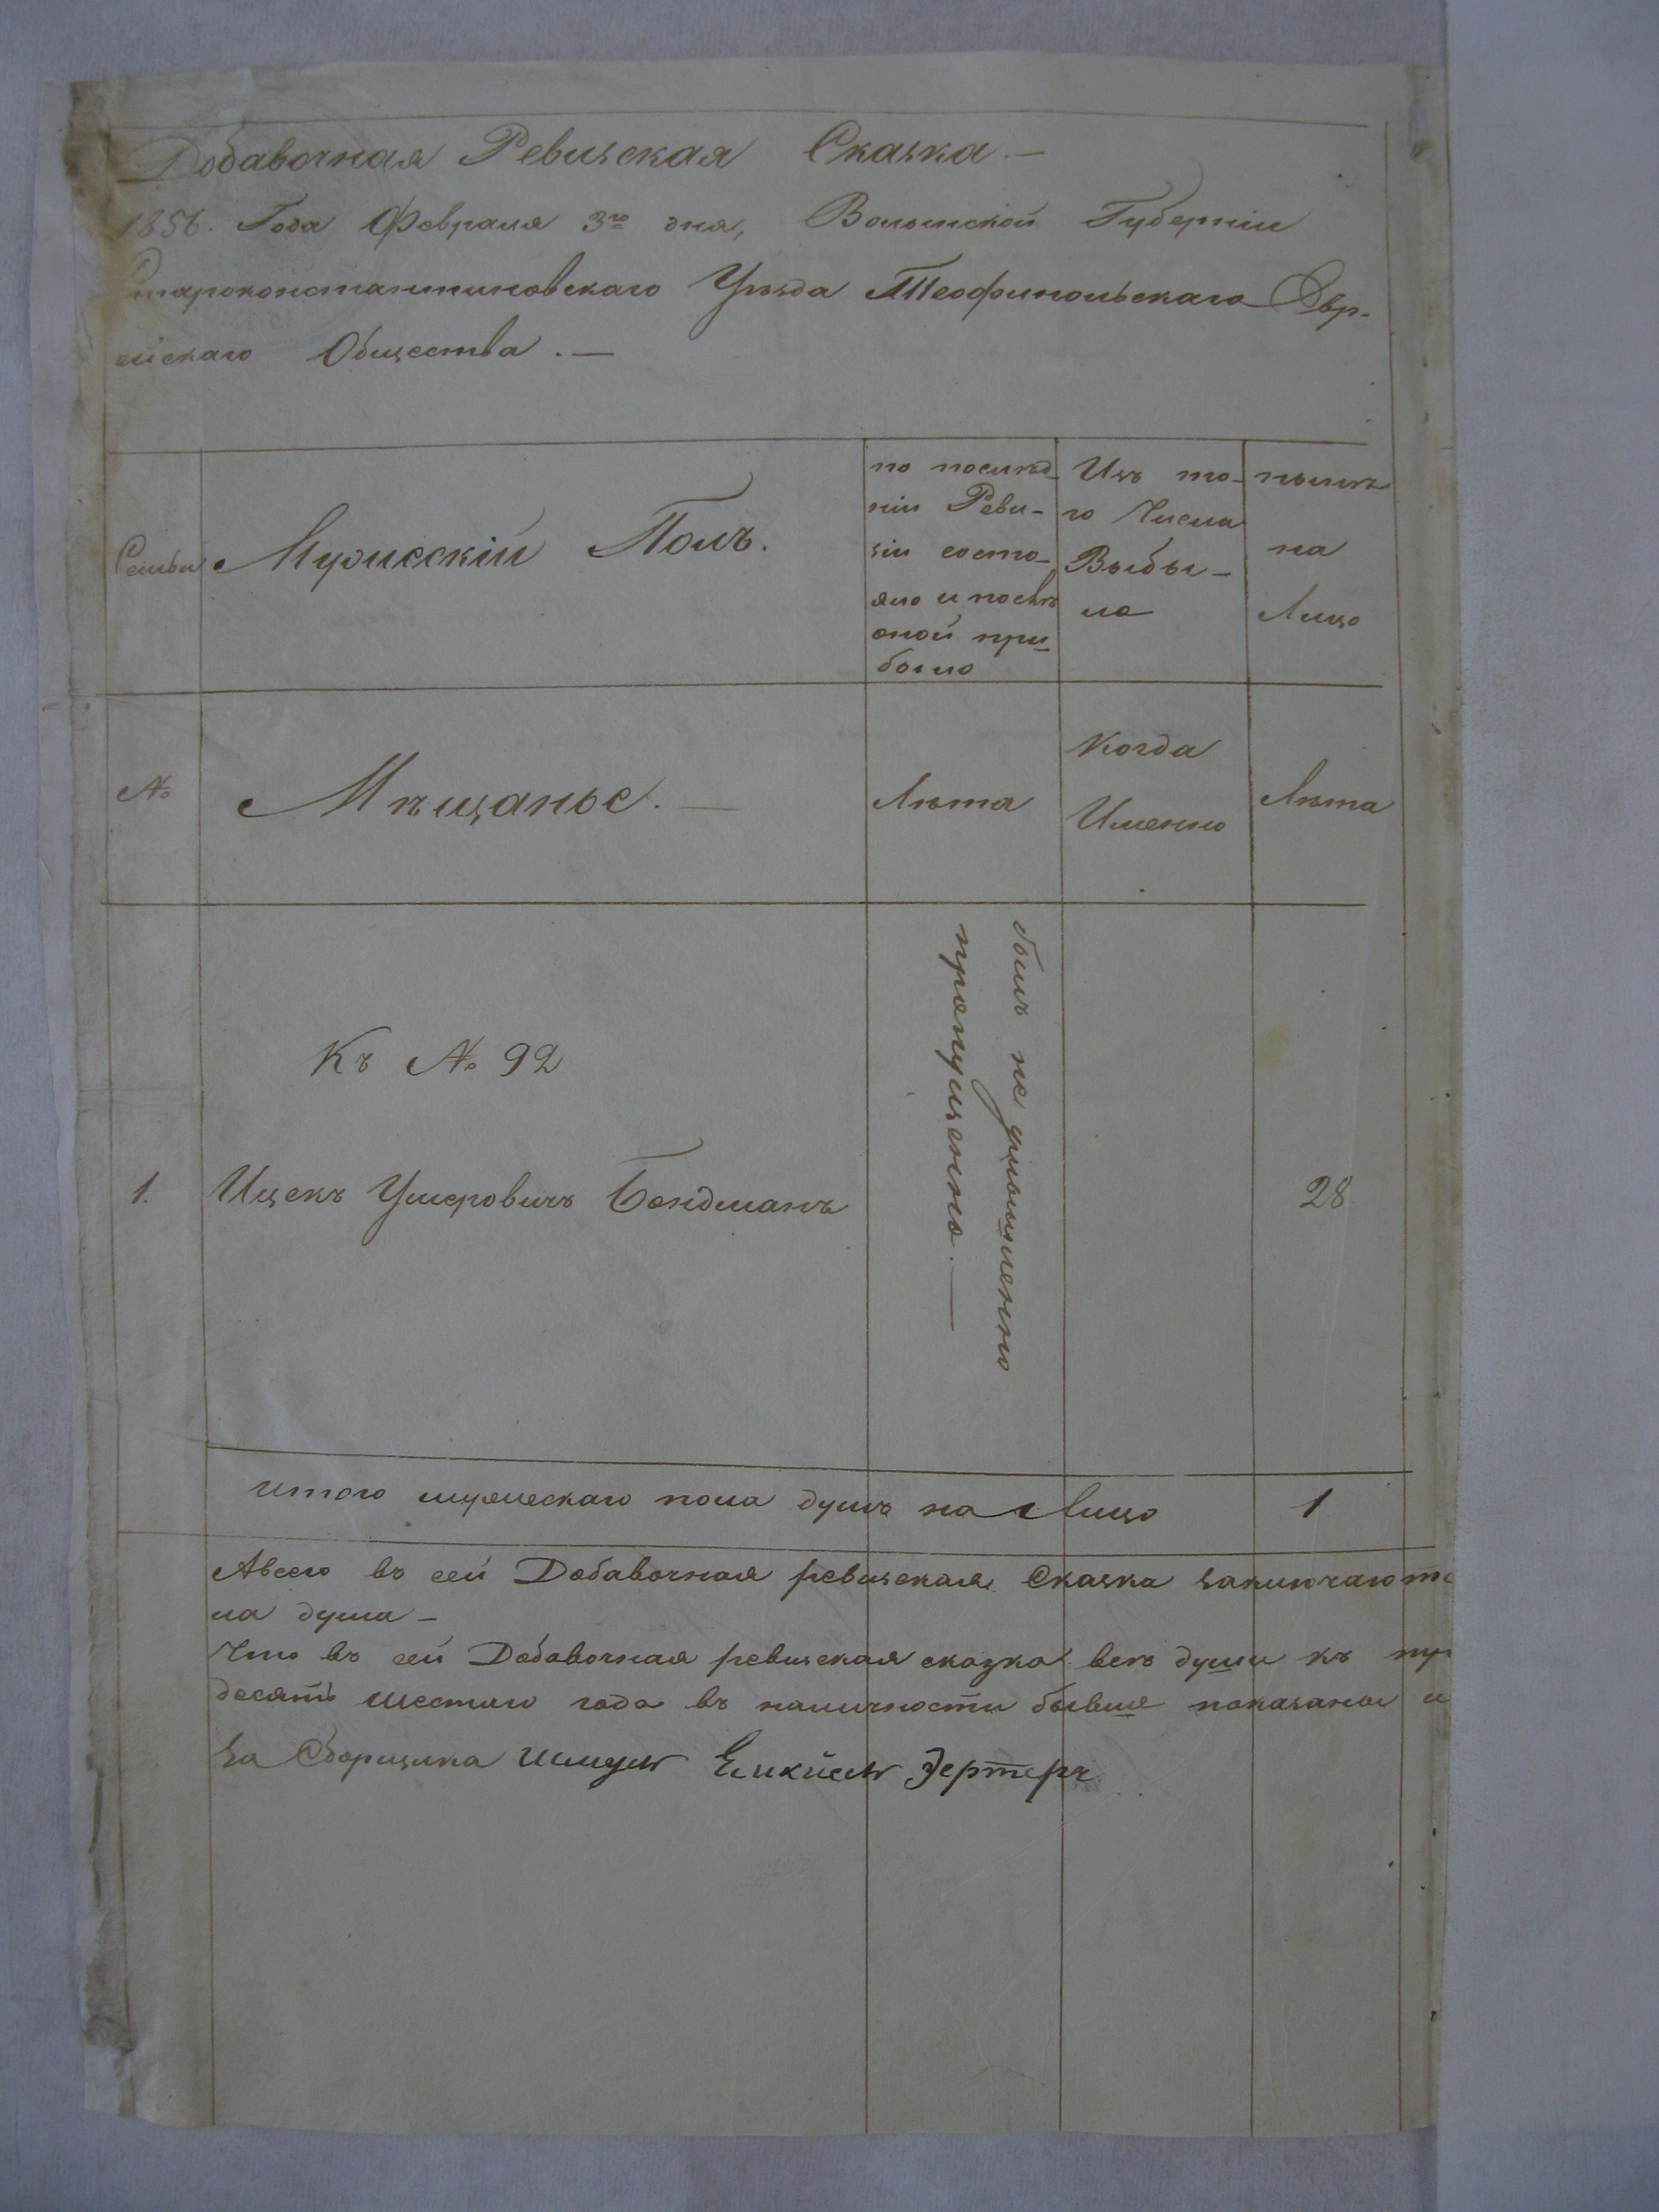 Добавочная Ревизская Сказка.—
1856. Года Февраля 3го дня, Волынской Губернiи
Староконстантиновскаго Уѣзда Теофипольскаго Евр-
ейскаго Общества.—
Семьи
Мужескiй Полъ.
по послѣд-
нiи Реви-
зiи состо-
яло и послѣ
оной при-
было
Изъ то-
го Числа
Выбы-
ло
нынѣ
на
Лицо
№
Мѣщанье.—
Лѣта
Когда
Именно
Лѣта
Къ № 92
былъ не умышленно
пропущенно.—
1. Ицекъ Умеровичъ Бондманъ 28
итого мужескаго пола душъ на Лицо 1
Авсего въ сей Добавочная ревизская Сказка заключают
на душа—
Что въ сей Добавочная ревизская сказка всѣ души къ
десять шестого года въ наличности бывше показаны и
За Сборщика Шмуль Елкисъ Зертеръ